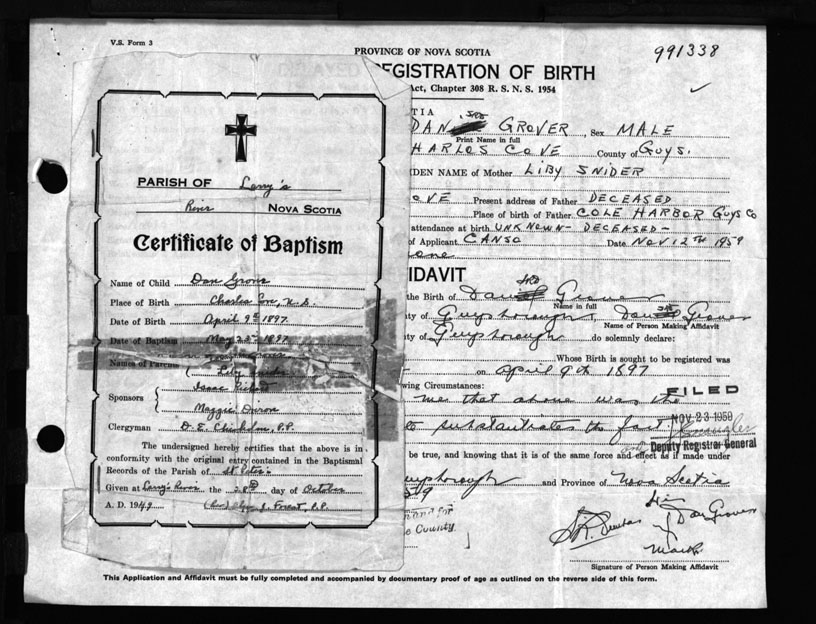 V.S. Form 3
PROVINCE OF NOVA SCOTIA
991338
REGISTRATION OF BIRTH
Act, Chapter 308 R. S. N. S. 1954
TIA
DAN GROVER, Sex MALE
Print Name in full
HARLOS COVE County of GUYS.
DEN NAME of Mother LIBY SNIDER
OVE Present address of Father DECEASED
Place of birth of Father COLE HARBOR GUYS CO
attendance at birth UNKNOWN - DECEASED -
of Applicant CANSO Date NOV 12TH 1959
one
IDAVIT
the Birth of Dan Grover
Name in full
ty of Guysborough, Dan Grover
Name of Person Making Affidavit
ty of Guysborough do solemnly declare:
Whose Birth is sought to be registered was
on April 9th 1897
wing Circumstances:
me that above was the
FILED
NOV 23 1959
to substantiates the fact
Deputy Registrar General
be true, and knowing that it is of the same force and effect as if made under
uysborough and Province of Nova Scotia
and for
County
His
Dan Grover
Mark
Signature of Person Making Affidavit
This Application and Affidavit must be fully completed and accompanied by documentary proof of age as outlined on the reverse side of this form.
PARISH OF Larry's
River NOVA SCOTIA
Certificate of Baptism
Name of Child Dan Grover
Place of Birth Charlos Cove, N.S.
Date of Birth April 9th 1897.
Date of Baptism May 23rd 1897
Names of Parents
Liby Snider
Sponsors
Isaac
Maggie
Clergyman D. E. Chisholm, P.P.
The undersigned hereby certifies that the above is in
conformity with the original entry contained in the Baptismal
Records of the Parish of St Peter's
Given at Larry's River the 28th day of October
A. D. 1949 P.P.